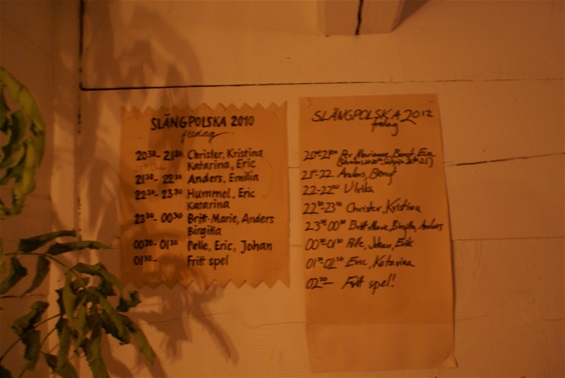 SLÄNGPOLSKA 2010
fredag
20³⁰-21³⁰ Christer, Kristina
Katarina, Eric
21³⁰-22³⁰ Anders, Emilia
22³⁰-23³⁰ Hummel, Eric
Katarina
23³⁰-00³⁰ Britt-Marie, Anders
Birgitta
00³⁰-01³⁰ Pelle, Eric, Johan
01³⁰- Fritt spel
SLÄNGPOLSKA 2012
fredag
Marianne, Bengt, Eva
21-22 Anders, Bengt
Ulrika
Christer, Kristina
Britt-Marie, Birgitta, Anders
Pelle, Johan, Erik
Eric, Katarina
Fritt spel!